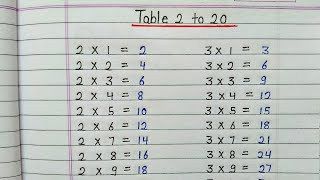 Table 2 to 20
2 × 1 = 2
2 × 2 = 4
2 × 3 = 6
2 × 4 = 8
2 × 5 = 10
2 × 6 = 12
2 × 7 = 14
2 × 8 = 16
2 × 9 = 18
3 × 1 = 3
3 × 2 = 6
3 × 3 = 9
3 × 4 = 12
3 × 5 = 15
3 × 6 = 18
3 × 7 = 21
3 × 8 = 24
3 × 9 = 27